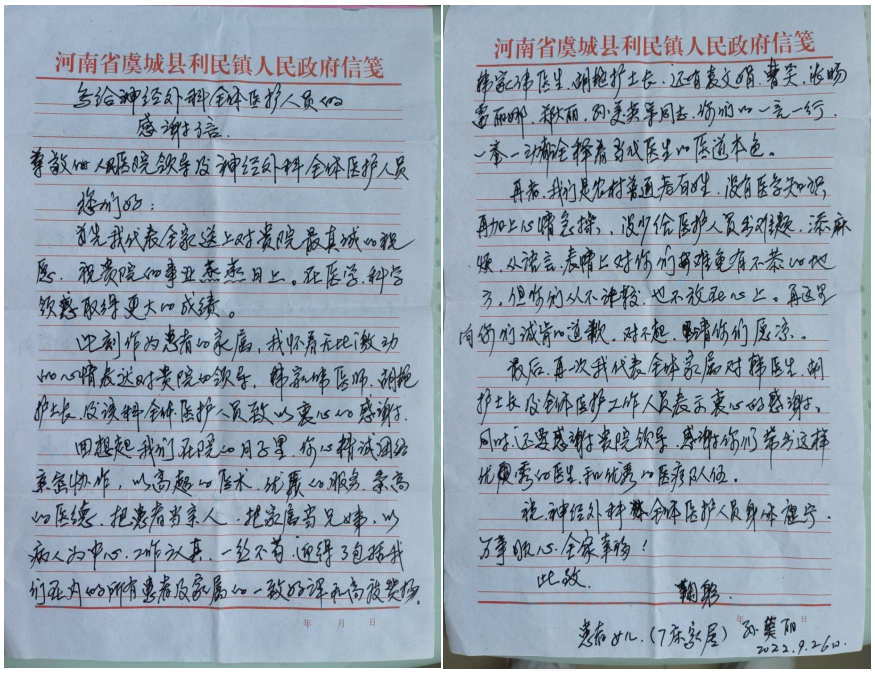 河南省虞城县利民镇人民政府信笺
写给神经外科全体医护人员的
感谢信
尊敬的人民医院领导及神经外科全体医护人员
您们好:
首先我代表全家送上对贵院最真诚的祝
愿。祝贵院的事业蒸蒸日上。在医学,科学
领域取得更大的成绩。
此刻作为患者的家属,我怀着无比激动
的心情表达对贵院的领导,韩家伟医师,胡艳
护士长及该科全体医护人员致以衷心的感谢。
回想起我们在院的日子里,你们精诚团结
亲密协作,以高超的医术,优质的服务,崇高
的医德,把患者当亲人,把家属当兄妹,以
病人为中心,工作认真,一丝不苟,迎得了包括我
们在内的所有患者及家属的一致好评和高度赞扬。
年 月 日
河南省虞城县利民镇人民政府信笺
韩家伟医生,胡艳护士长,还有袁文娟,曹
雷丽娜,郑丽,孙 等同志,你们的一言一行,
一举一动都诠释着当代医生的医道本色。
再者,我们是农村普通老百姓,没有医学知识,
再加上心情急躁,没少给医护人员出难题,添麻
烦,从语言,表情上对你们难免有不恭的地
方,但你们从不计较,也不放在心上。再这里
向你们诚肯的道歉,对不起,请你们愿凉。
最后,再一次我代表全体家属对韩医生,胡
护士长及全体医护工作人员表示衷心的感谢。
同时,还要感谢贵院领导,感谢你们带出这样
优秀的医生和优秀的医疗队伍。
祝,神经外科全体医护人员身体健康,
万事顺心,全家幸福!
此致
鞠躬
年 日
患者女儿(7床家属) 孙 丽
2022.9.26日